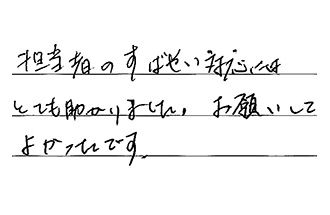 担当者のすばやい対応には
とても助かりました。お願いして
よかったです。